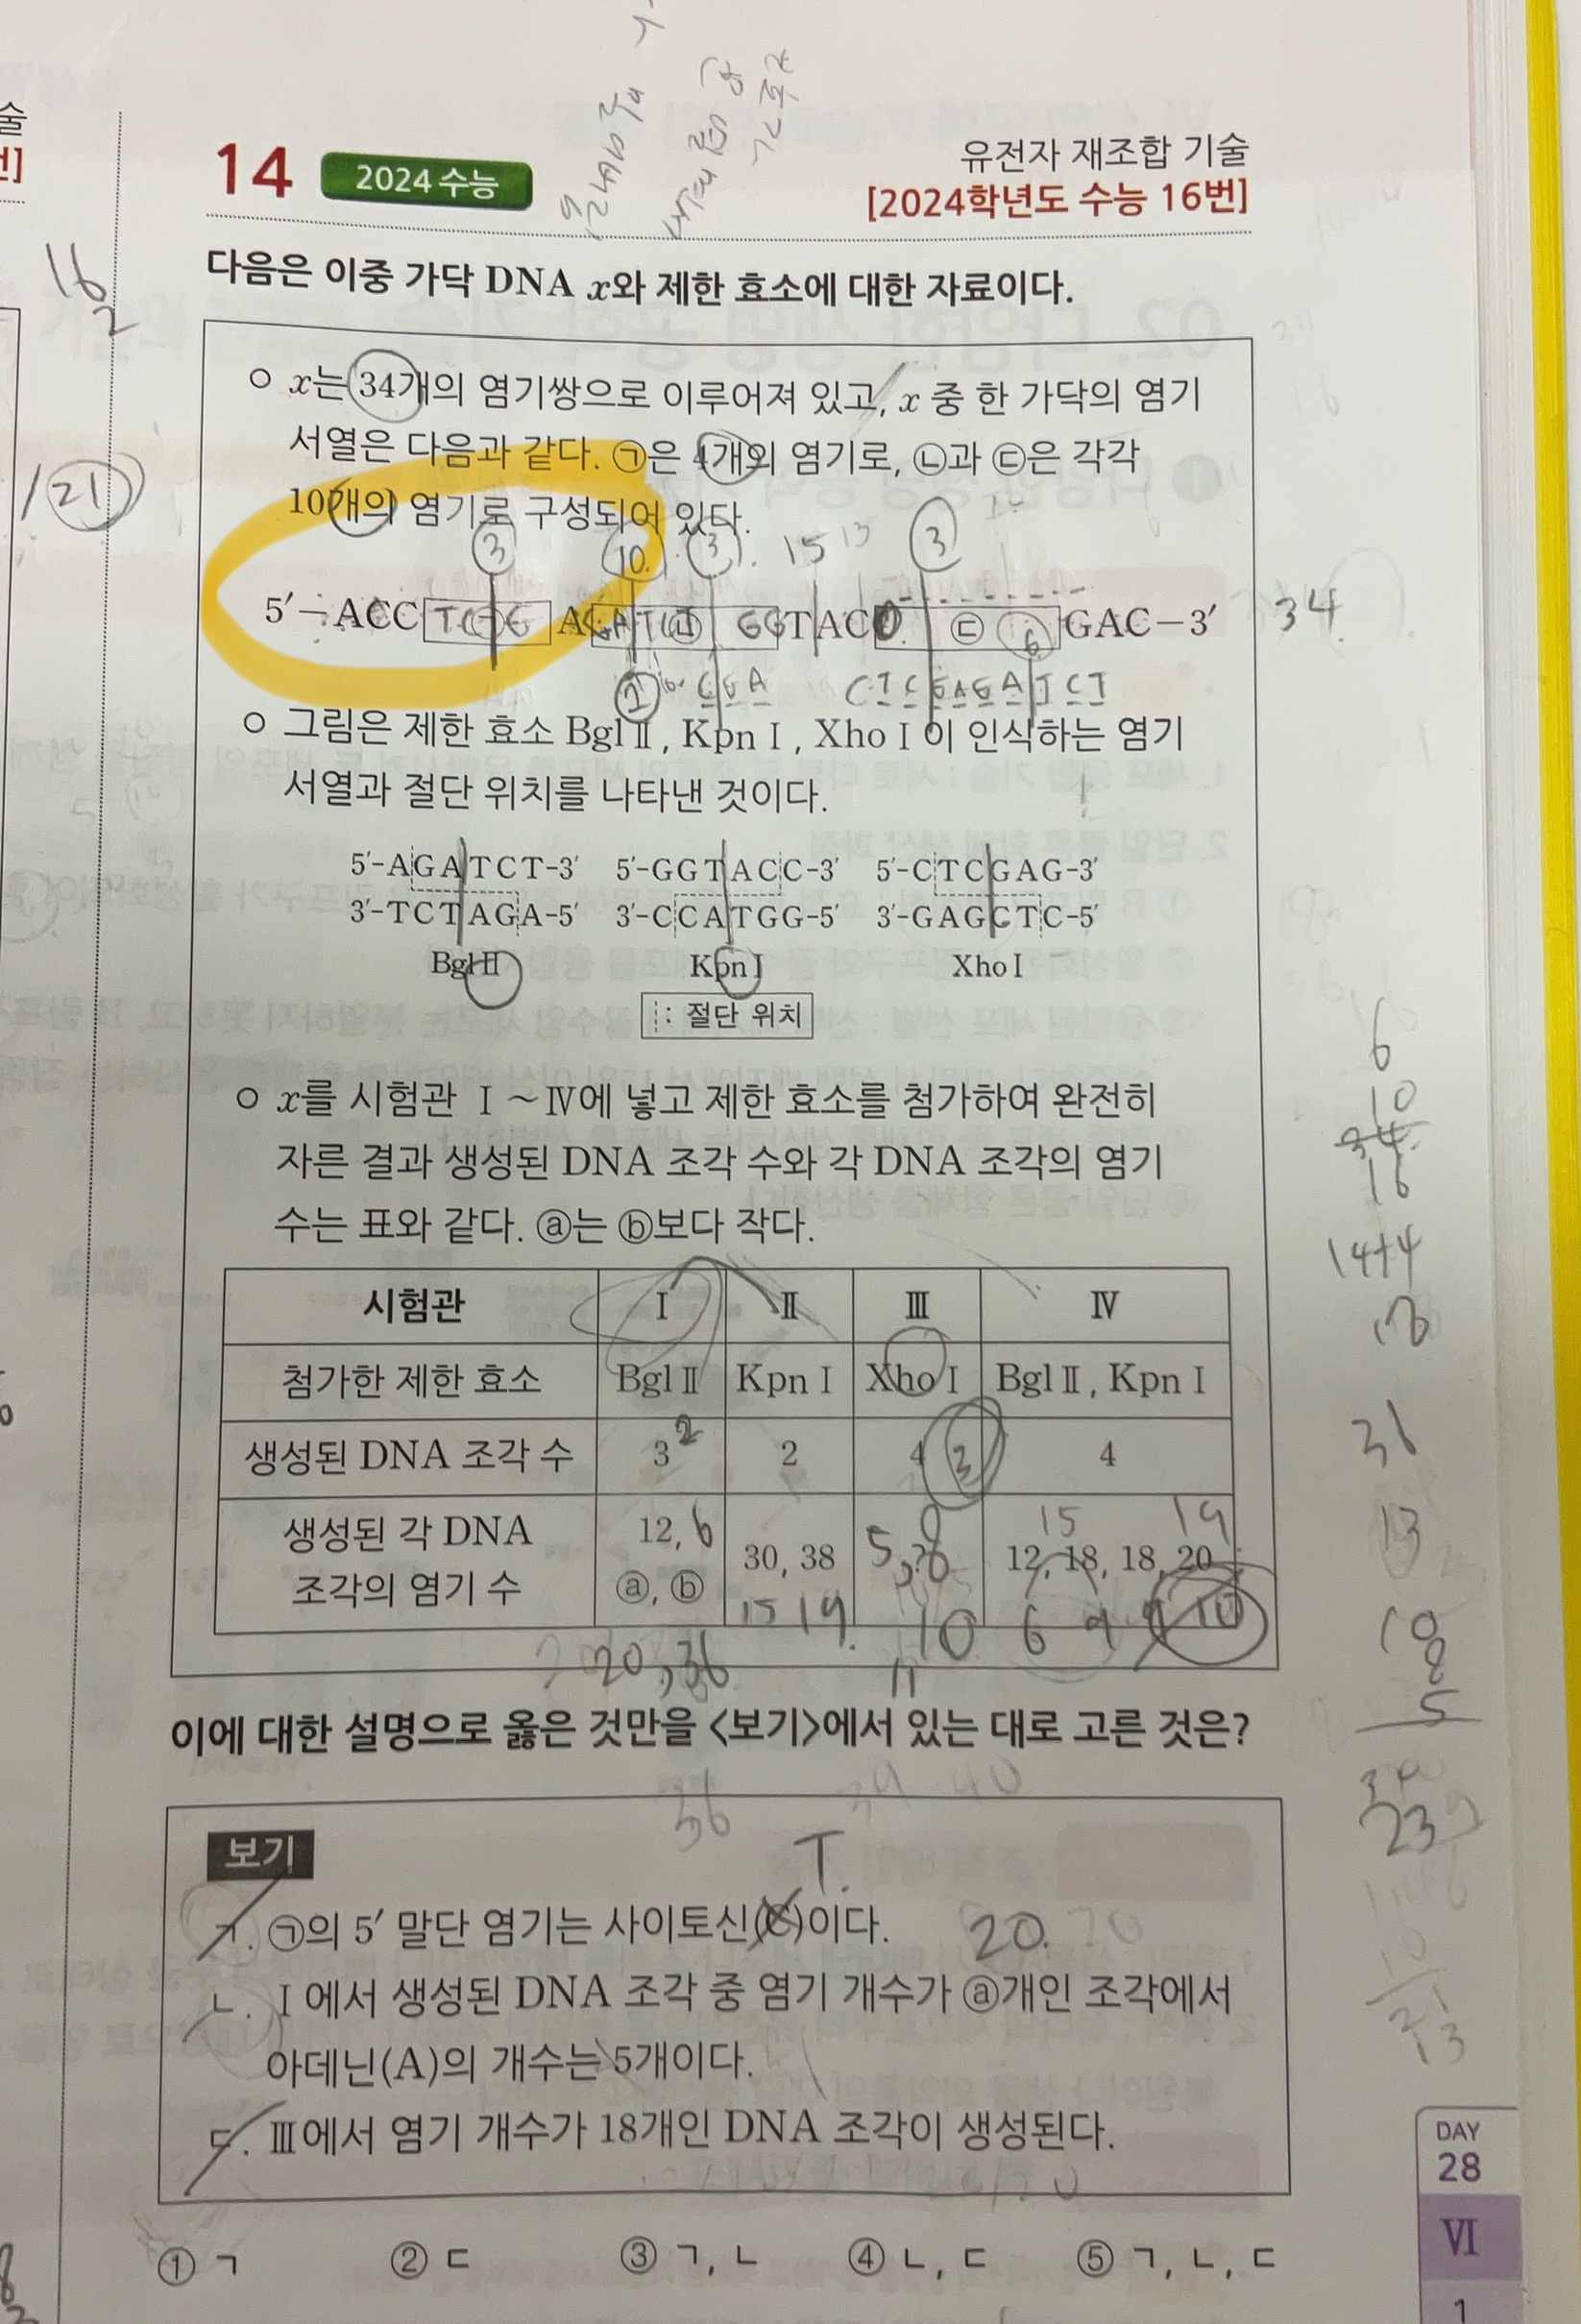 술
14 2024 수능
유전자 재조합 기술
[2024학년도 수능 16번]
다음은 이중 가닥 DNA x와 제한 효소에 대한 자료이다.
○ x는 34개의 염기쌍으로 이루어져 있고, x 중 한 가닥의 염기
서열은 다음과 같다. ㉠은 4개의 염기로, ㉡과 ㉢은 각각
10개의 염기로 구성되어 있다.
3 10 3 15 13 3
5′-ACC TCG AGATCT㉡ GGTACC ㉢ 6 GAC-3′ 34
CTCGAGATCT
○ 그림은 제한 효소 BglⅡ, KpnⅠ, XhoⅠ이 인식하는 염기
서열과 절단 위치를 나타낸 것이다.
5′-AGATCT-3′ 5′-GGTACC-3′ 5′-CTCGAG-3′
3′-TCTAGA-5′ 3′-CCATGG-5′ 3′-GAGCTC-5′
BglⅡ KpnⅠ XhoⅠ
: 절단 위치
○ x를 시험관 Ⅰ~Ⅳ에 넣고 제한 효소를 첨가하여 완전히
자른 결과 생성된 DNA 조각 수와 각 DNA 조각의 염기
수는 표와 같다. ⓐ는 ⓑ보다 작다.
시험관 Ⅰ Ⅱ Ⅲ Ⅳ
첨가한 제한 효소 BglⅡ KpnⅠ XhoⅠ BglⅡ, KpnⅠ
생성된 DNA 조각 수 3 2 2 4 3 4
생성된 각 DNA
조각의 염기 수
12, 6
ⓐ, ⓑ
30, 38
15 19
5, 8
10
11
15 19
12, 18, 18, 20
6 9 9 10
20, 36
이에 대한 설명으로 옳은 것만을 <보기>에서 있는 대로 고른 것은?
36
보기
T
ㄱ. ㉠의 5′ 말단 염기는 사이토신(C)이다.
20.
ㄴ. Ⅰ에서 생성된 DNA 조각 중 염기 개수가 ⓐ개인 조각에서
아데닌(A)의 개수는 5개이다.
ㄷ. Ⅲ에서 염기 개수가 18개인 DNA 조각이 생성된다.
① ㄱ ② ㄷ ③ ㄱ, ㄴ ④ ㄴ, ㄷ ⑤ ㄱ, ㄴ, ㄷ
16
2
21
6
10
34
16
14+4
18
31
13
10
8
5
23
DAY
28
Ⅵ
1